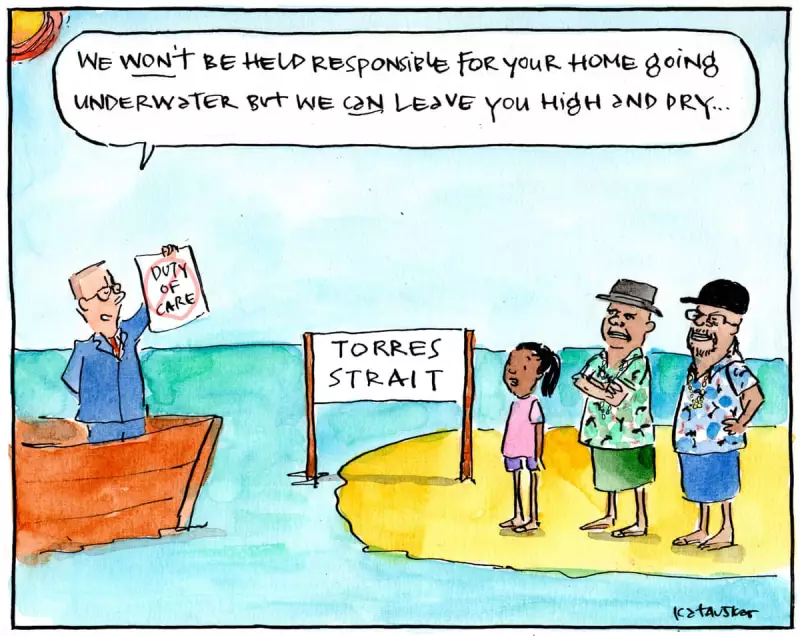 WE WON'T BE HELD RESPONSIBLE FOR YOUR HOME GOING
UNDERWATER BUT WE CAN LEAVE YOU HIGH AND DRY...
DUTY
OF
CARE
TORRES
STRAIT
Katauskas